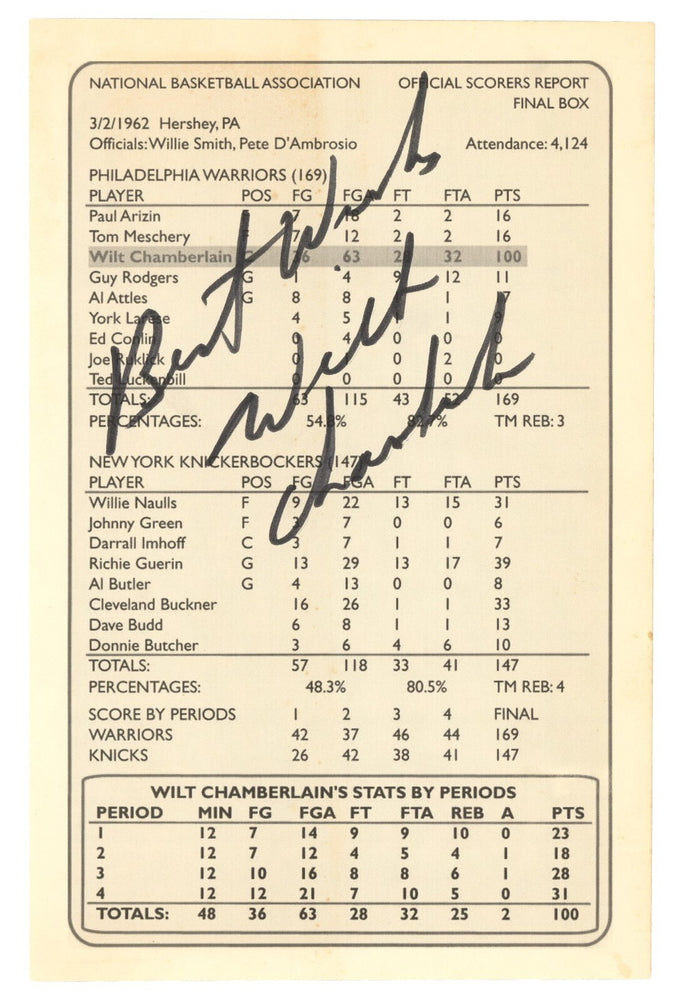 NATIONAL BASKETBALL ASSOCIATION OFFICIAL SCORERS REPORT
FINAL BOX
3/2/1962 Hershey, PA
Officials: Willie Smith, Pete D'Ambrosio Attendance: 4,124
PHILADELPHIA WARRIORS (169)
PLAYER POS FG FGA FT FTA PTS
Paul Arizin 7 18 2 2 16
Tom Meschery 7 12 2 2 16
Wilt Chamberlain C 36 63 28 32 100
Guy Rodgers G 1 4 9 12 11
Al Attles G 8 8 1 17
York Larese 4 5 1 1 9
Ed Conlin 0 4 0 0 0
Joe Ruklick 0 0 0 2 0
Ted Luckenbill 0 0 0 0 0
TOTALS: 63 115 43 52 169
PERCENTAGES: 54.8% 82.7% TM REB: 3
Best Wishes
Wilt
Chamberlain
NEW YORK KNICKERBOCKERS (147)
PLAYER POS FG FGA FT FTA PTS
Willie Naulls F 9 22 13 15 31
Johnny Green F 3 7 0 0 6
Darrall Imhoff C 3 7 1 1 7
Richie Guerin G 13 29 13 17 39
Al Butler G 4 13 0 0 8
Cleveland Buckner 16 26 1 1 33
Dave Budd 6 8 1 1 13
Donnie Butcher 3 6 4 6 10
TOTALS: 57 118 33 41 147
PERCENTAGES: 48.3% 80.5% TM REB: 4
SCORE BY PERIODS 1 2 3 4 FINAL
WARRIORS 42 37 46 44 169
KNICKS 26 42 38 41 147
WILT CHAMBERLAIN'S STATS BY PERIODS
PERIOD MIN FG FGA FT FTA REB A PTS
1 12 7 14 9 9 10 0 23
2 12 7 12 4 5 4 1 18
3 12 10 16 8 8 6 1 28
4 12 12 21 7 10 5 0 31
TOTALS: 48 36 63 28 32 25 2 100